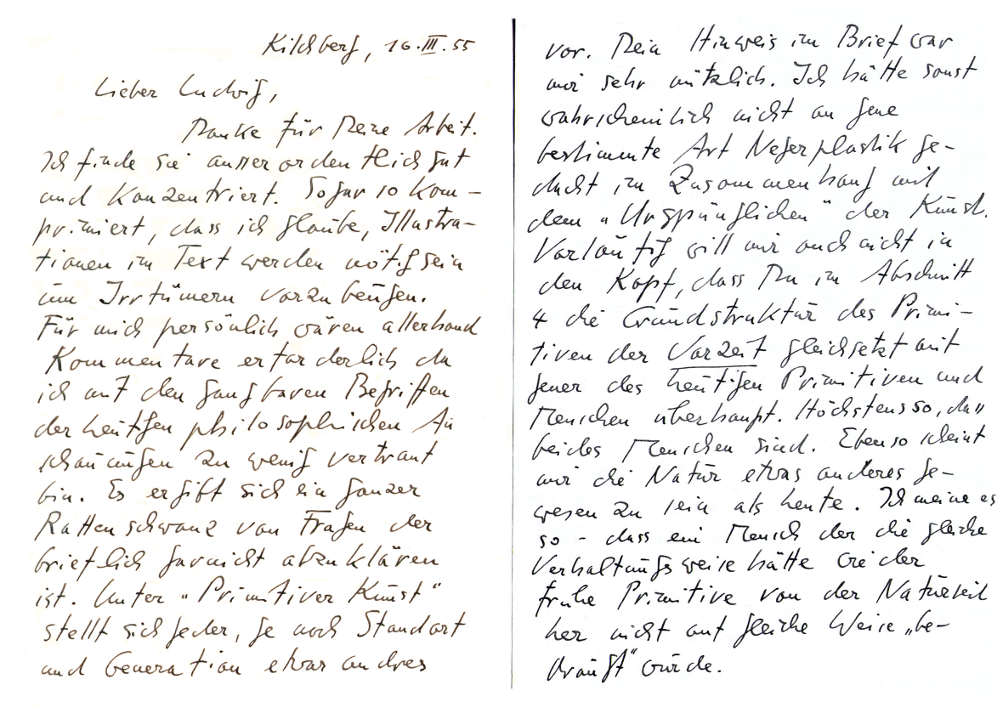 Kilchberg, 16.III.55
Lieber Ludwig,
Danke für Deine Arbeit.
Ich finde sie ausserordentlich gut
und konzentriert. Sogar so kom-
primiert, dass ich glaube, Illustra-
tionen im Text werden nötig sein
um Irrtümern vorzubeugen.
Für mich persönlich wären allerhand
Kommentare erforderlich da
ich mit den gangbaren Begriffen
der heutigen philosophischen An
schauungen zu wenig vertraut
bin. Es ergibt sich ein ganzer
Rattenschwanz von Fragen der
brieflich garnicht abzuklären
ist. Unter „Primitiver Kunst"
stellt sich jeder, je nach Standort
und Generation etwas andres
vor. Dein Hinweis im Brief war
mir sehr nützlich. Ich hätte sonst
wahrscheinlich nicht an jene
bestimmte Art Negerplastik ge-
dacht im Zusammenhang mit
dem „Ursprünglichen" der Kunst.
Vorläufig will mir auch nicht in
den Kopf, dass Du im Abschnitt
4 die Grundstruktur des Primi-
tiven der Vorzeit gleichsetzt mit
jener des heutigen Primitiven und
Menschen überhaupt. Höchstens so, dass
beides Menschen sind. Ebenso scheint
mir die Natur etwas anderes ge-
wesen zu sein als heute. Ich meine es
so - dass ein Mensch der die gleiche
Verhaltungsweise hätte wie der
frühe Primitive von der Naturseite
her nicht auf gleiche Weise „be-
dräugt" würde.